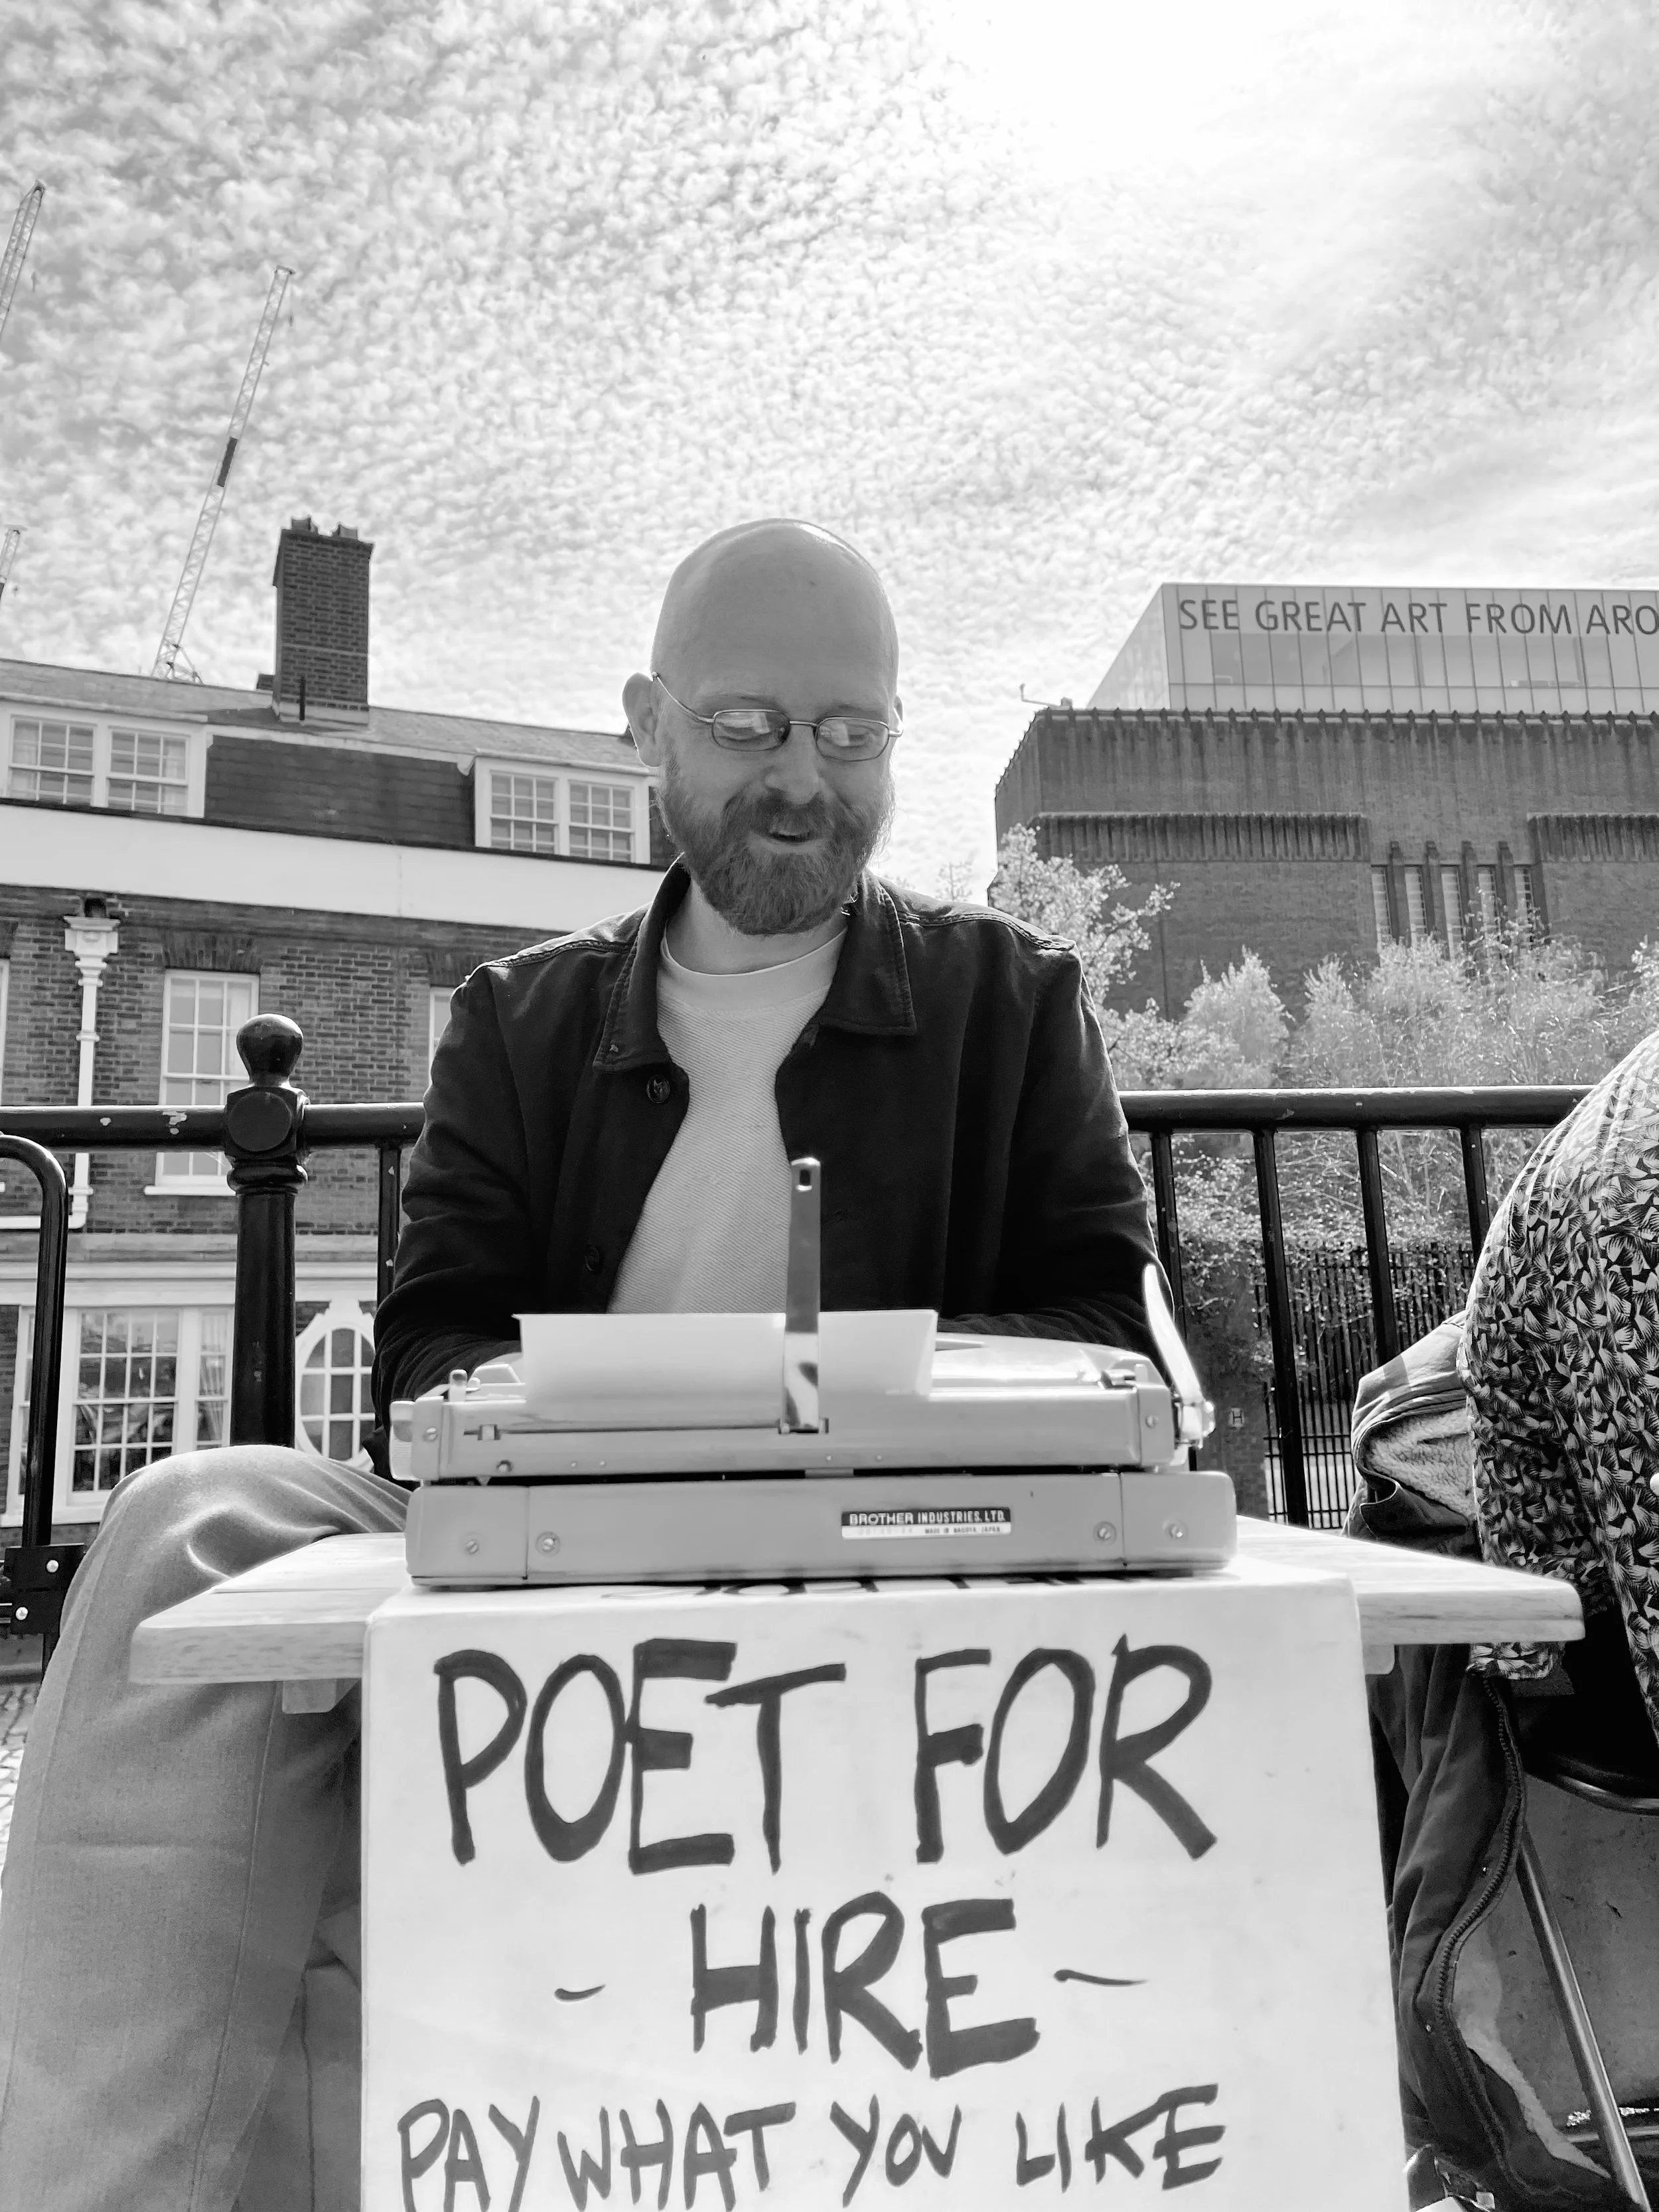 SEE GREAT ART FROM ARO
BROTHER INDUSTRIES, LTD.
MADE IN NAGOYA, JAPAN
POET FOR
- HIRE -
PAY WHAT YOU LIKE